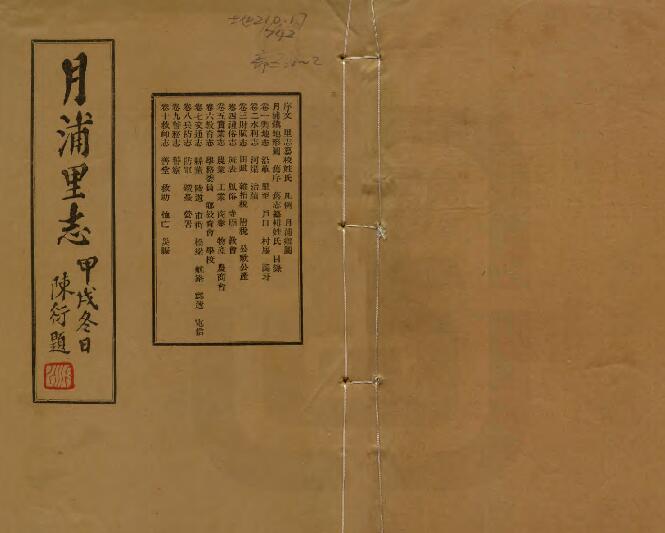 月浦里志
甲戌冬日
陳衍題
序文 里志纂校姓氏 凡例 月浦鄉圖
月浦鎮地形圖 舊序 舊志纂輯姓氏 目錄
卷一輿地志 沿革 里至 戶口 村落 區圩
卷二水利志 河渠 治績
卷三財賦志 田畝 雜捐稅 附稅 公款公產
卷四禮俗志 風俗 寺廟 教會
卷五實業志 農業 工業 商業 物產 農商會
卷六教育志 學務委員 鄉教育會 學校
卷七交通志 陸道 市街 橋梁 航路 郵遞 電信
卷八兵防志 防軍 營署
卷九警務志 警察
卷十救卹志 善堂 救助 恤亡